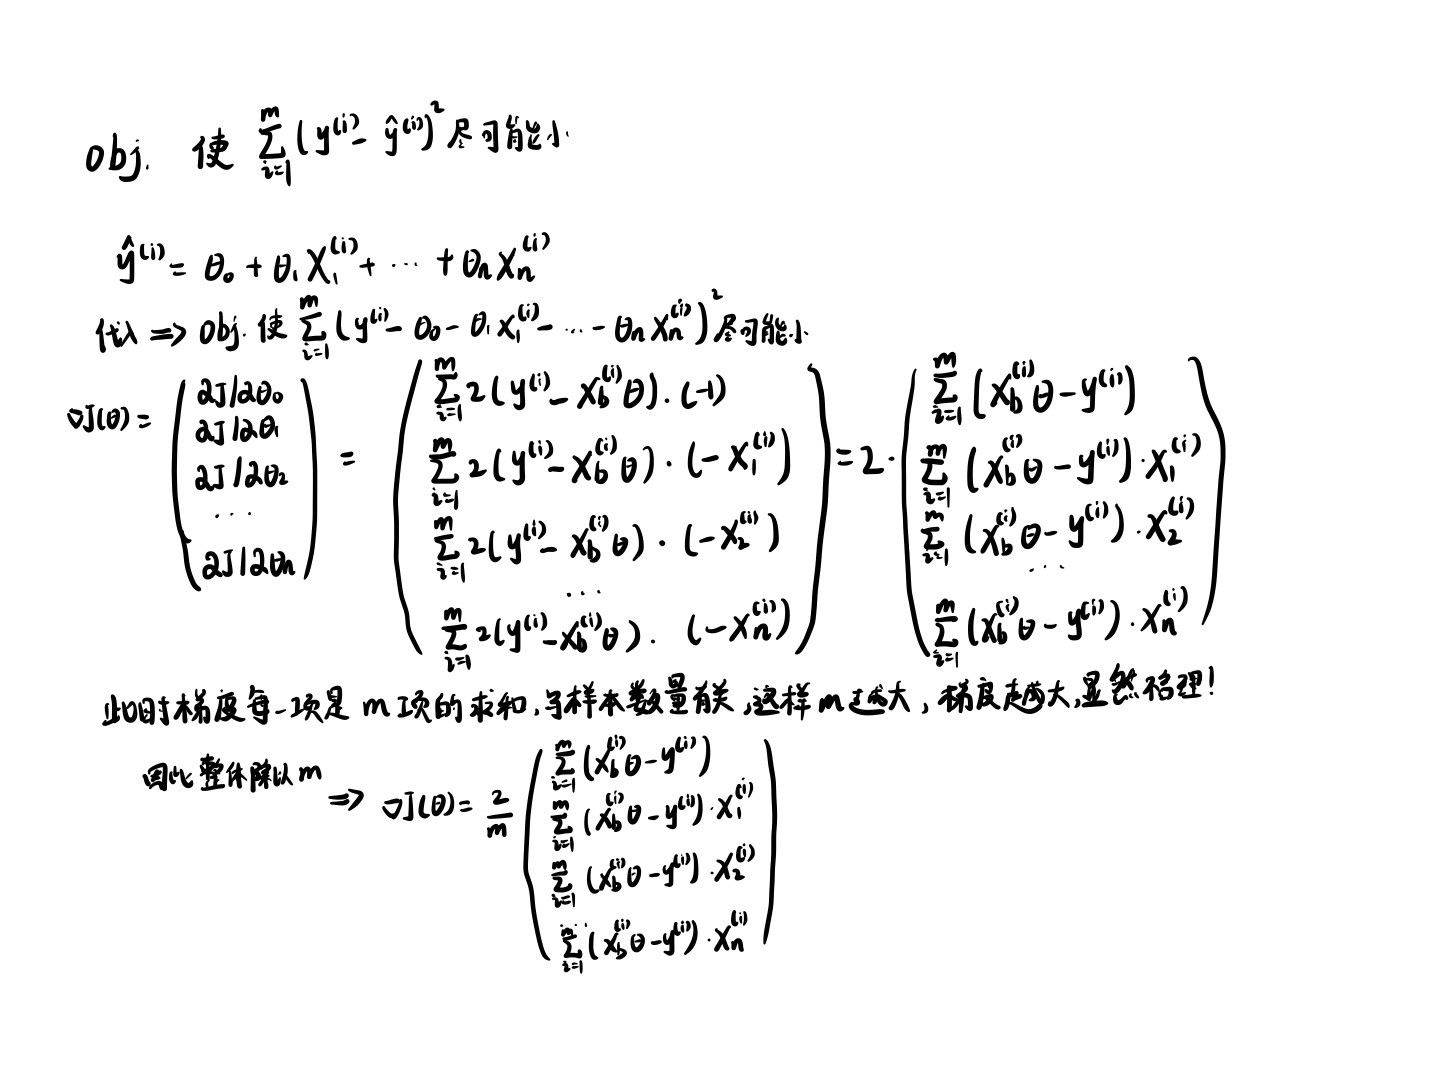 obj. 使 ∑_{i=1}^{m} (y^{(i)} - ŷ^{(i)})^2 尽可能小.
ŷ^{(i)} = θ_0 + θ_1 X_1^{(i)} + ⋯ + θ_n X_n^{(i)}
代入 => obj. 使 ∑_{i=1}^{m} (y^{(i)} - θ_0 - θ_1 X_1^{(i)} - ⋯ - θ_n X_n^{(i)})^2 尽可能小.
∇J(θ) = ( ∂J/∂θ_0 ; ∂J/∂θ_1 ; ∂J/∂θ_2 ; ⋯ ; ∂J/∂θ_n ) = ( ∑_{i=1}^{m} 2(y^{(i)} - X_b^{(i)}θ)·(-1) ; ∑_{i=1}^{m} 2(y^{(i)} - X_b^{(i)}θ)·(-X_1^{(i)}) ; ∑_{i=1}^{m} 2(y^{(i)} - X_b^{(i)}θ)·(-X_2^{(i)}) ; ⋯ ; ∑_{i=1}^{m} 2(y^{(i)} - X_b^{(i)}θ)·(-X_n^{(i)}) ) = 2·( ∑_{i=1}^{m} (X_b^{(i)}θ - y^{(i)}) ; ∑_{i=1}^{m} (X_b^{(i)}θ - y^{(i)})·X_1^{(i)} ; ∑_{i=1}^{m} (X_b^{(i)}θ - y^{(i)})·X_2^{(i)} ; ⋯ ; ∑_{i=1}^{m} (X_b^{(i)}θ - y^{(i)})·X_n^{(i)} )
此时梯度每一项是 m 项的求和,与样本数量有关,这样 m 越大,梯度越大,显然不合理!
因此整体除以 m => ∇J(θ) = 2/m ( ∑_{i=1}^{m} (X_b^{(i)}θ - y^{(i)}) ; ∑_{i=1}^{m} (X_b^{(i)}θ - y^{(i)})·X_1^{(i)} ; ∑_{i=1}^{m} (X_b^{(i)}θ - y^{(i)})·X_2^{(i)} ; ⋯ ; ∑_{i=1}^{m} (X_b^{(i)}θ - y^{(i)})·X_n^{(i)} )